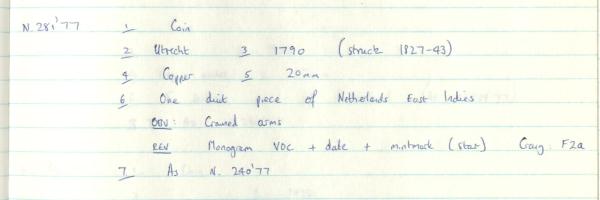 N. 281'77 1 Coin
2 Utrecht 3 1790 (struck 1827-43)
4 Copper 5 20mm
6 One duit piece of Netherlands East Indies
OBV: Crowned arms
REV Monogram VOC + date + mintmark (star) Craig: F2a
7 As N. 240'77